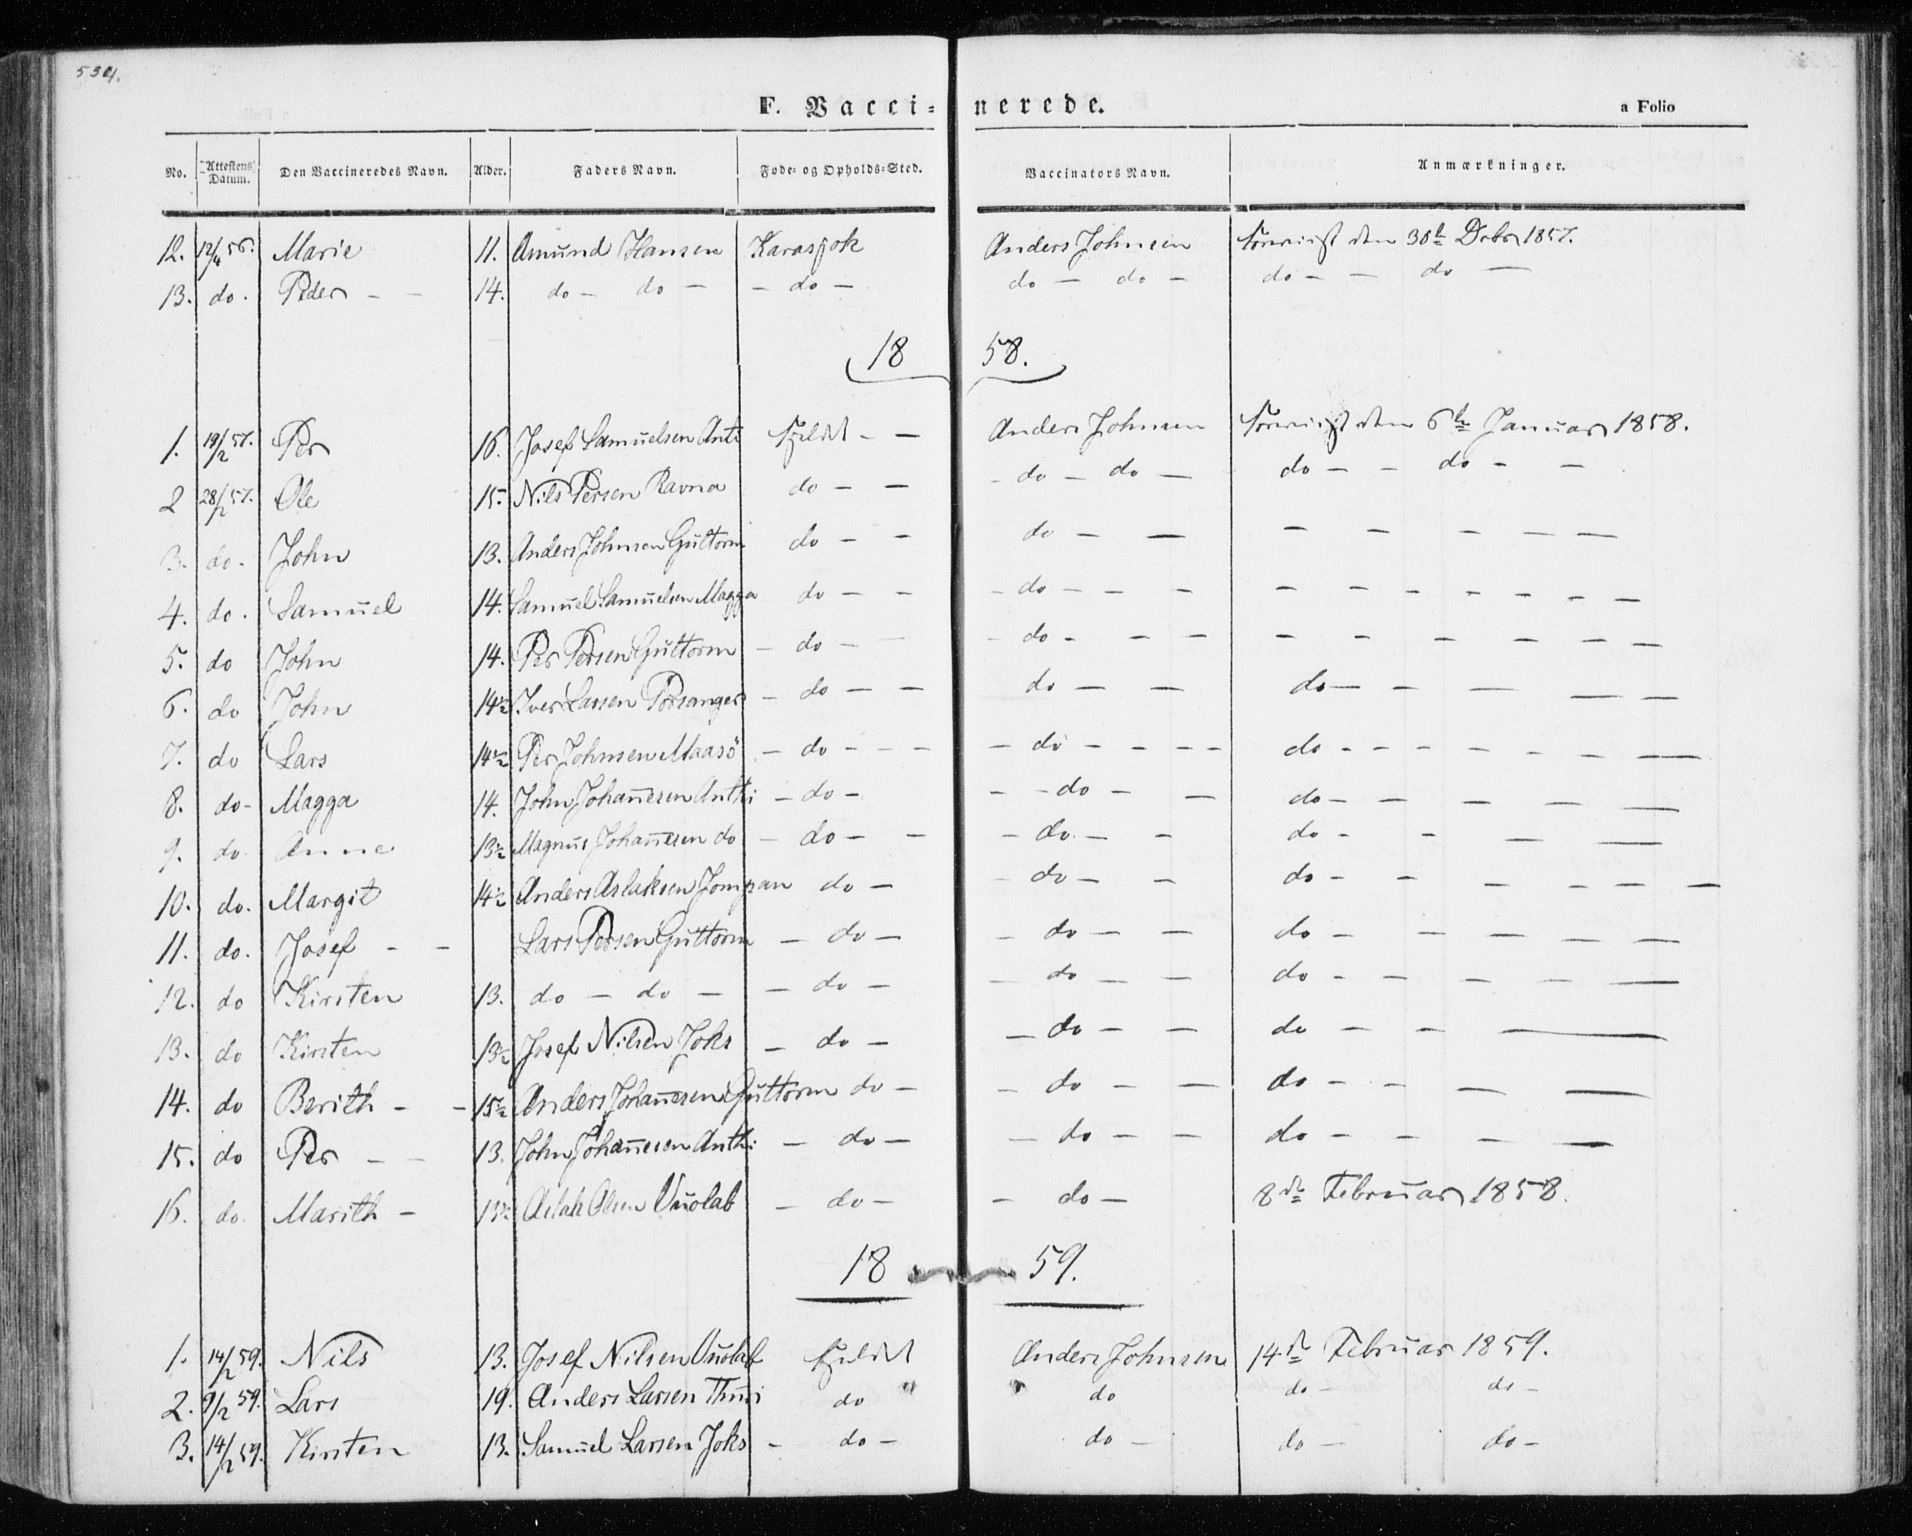 534.
F. Vaccinerede. a Folio
No. Attestens Datum. Den Vaccineredes Navn. Alder. Faders Navn. Føde- og Opholds-Sted. Vaccinators Navn. Anmærkninger.
12. 12/4 56. Marie 11. Amund Hansen Karasjok Anders Johnsen Forevist den 30te Decbr 1857.
13. do. Peder - - 14. do - do - - do - do - do - do - - do -
1858.
1. 19/2 57. Per 16. Josef Samuelsen Anti - - Anders Johnsen Forevist den 6te Januar 1858.
2 28/2 57. Ole 15. Nils Persen Ravna do - - - do - do - do - - do - -
3. do. John 13. Anders Johnsen Guttorm do - - do - - - - - - -
4. do. Samuel 14. Samuel Samuelsen Magga do - - - do - - - - - - - - - -
5. do John 14. Per Persen Guttorm - do - - - do - - - - - - - -
6. do John 14½ Iver Larsen Porsanger - do - - do - - do - - - - -
7. do Lars 14½ Per Johnsen Maasö - do - - - - do - - - - do - - - - - -
8. do - Magga 14. John Johannesen Anthi - do - - - do - - do - - - - -
9. do Anne 13½ Magnus Johannesen do - do - - - do - - do - - - -
10. do. Margit 14½ Anders Aslaksen Jompan do - - do - - do - - - - - -
11. do. Josef - - Lars Persen Guttorm - do - - do - - do - - - - -
12. do Kirsten 13. do - do - - do - - do - - do - - - - -
13. do Kirsten 13½ Josef Nilsen Joks - do - - do - - do - - -
14. do Berith - - 15½ Anders Johannesen Guttorm do - - do - - do - - - -
15. do Per - - 13. John Johannesen Anthi - do - - do - - do - - - -
16. do. Marith - 13½ Aslak Olsen Vuolab - do - - do - 8de Februar 1858.
1859.
1. 14/2 59. Nils 13. Josef Nilsen Vuolab Anders Johnsen 14de Februar 1859.
2. 9/2 59. Lars 19. Anders Larsen Thuri do do do - do -
3. 14/2 59. Kirsten 13. Samuel Larsen Joks - do - do - do - do -